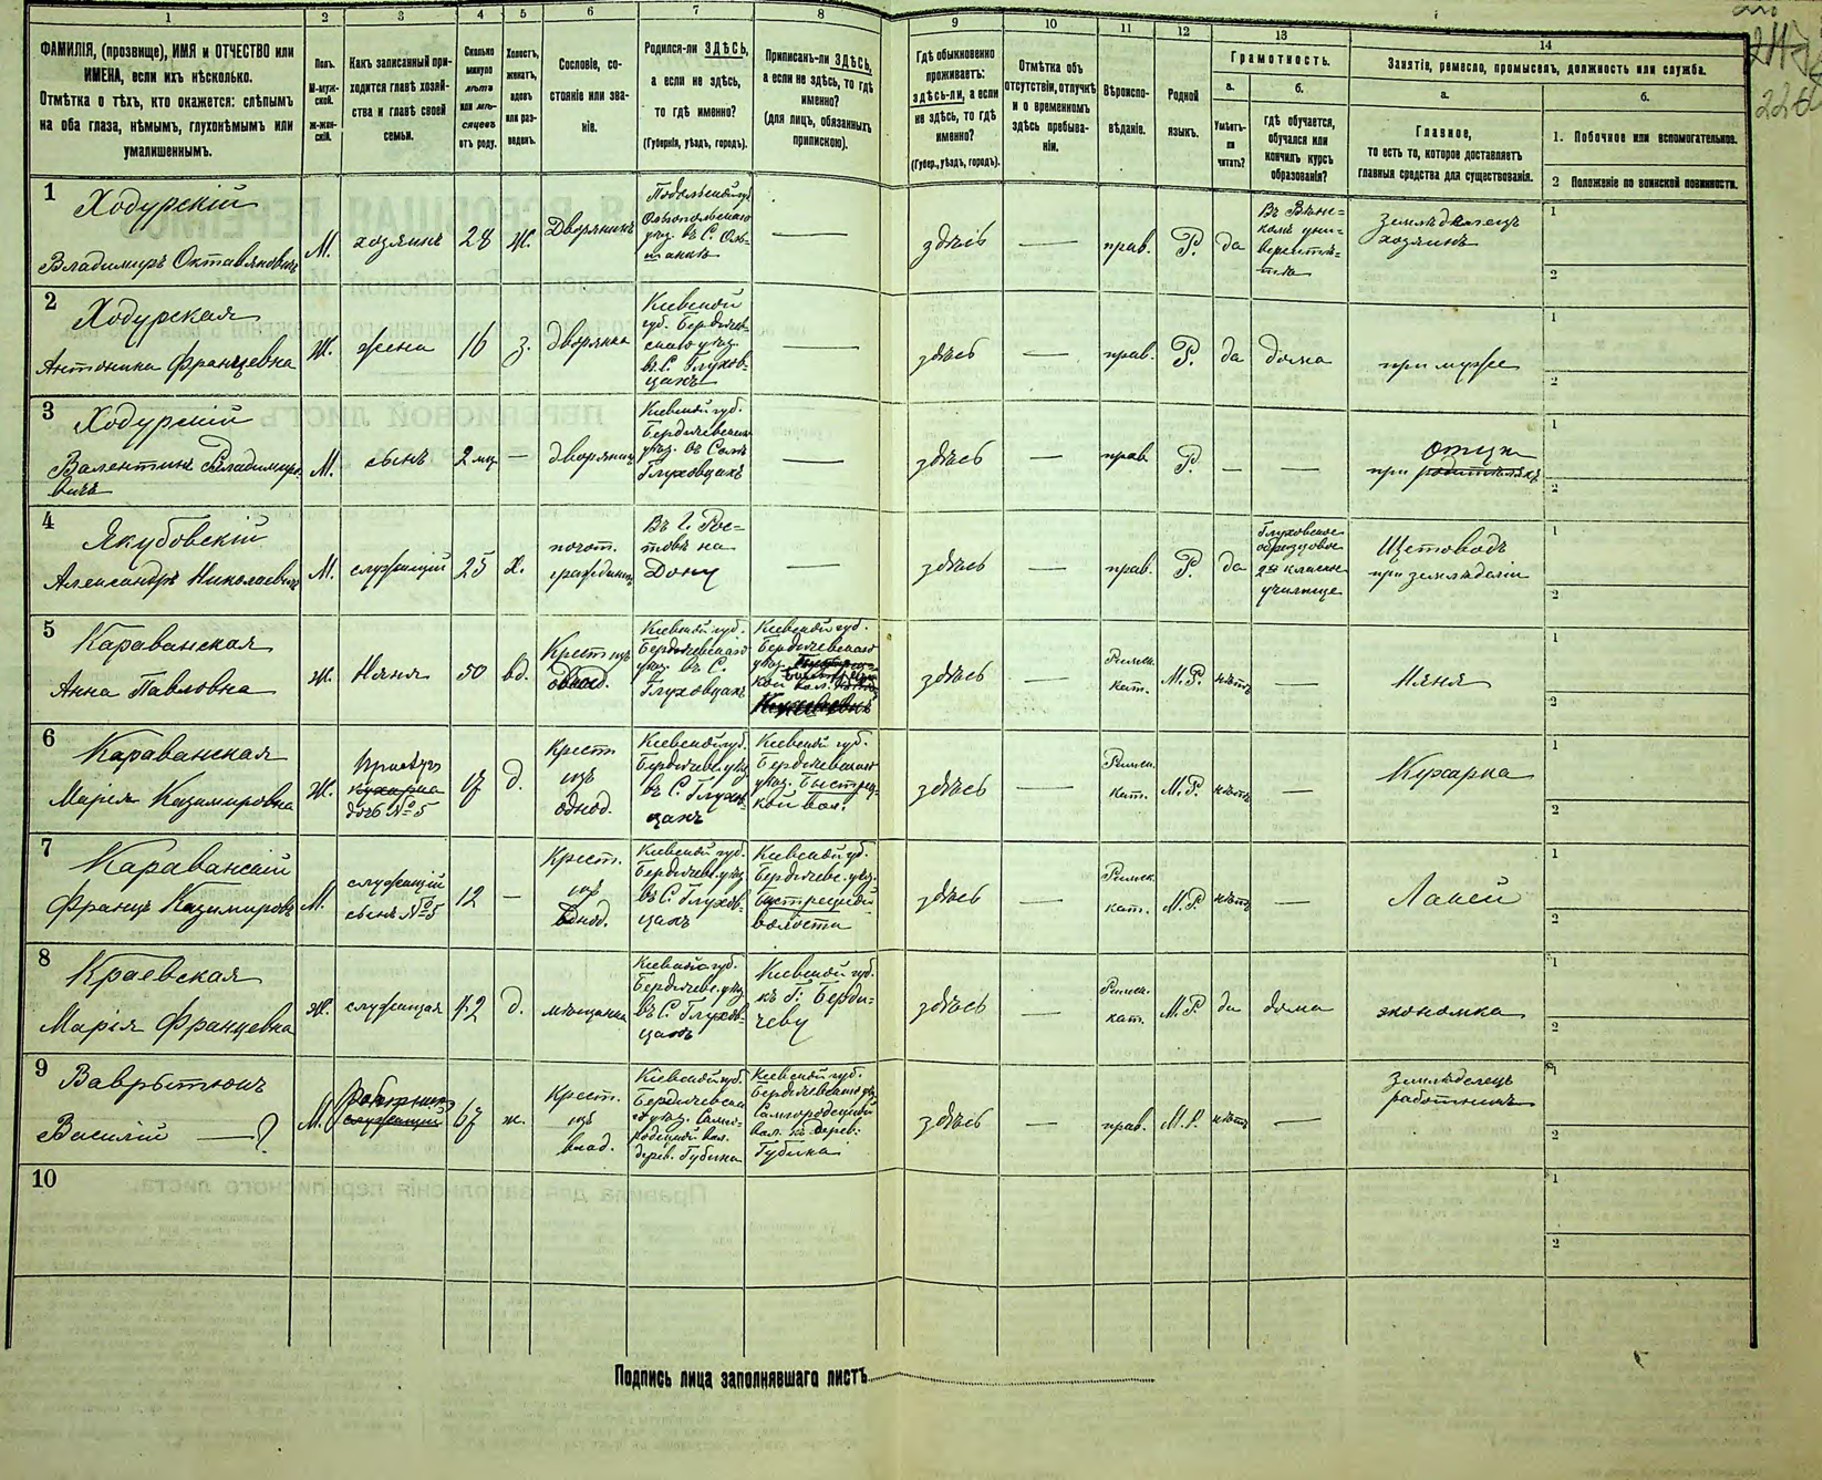 1 2 3 4 5 6 7 8 9 10 11 12 13 14
ФАМИЛІЯ, (прозвище), ИМЯ и ОТЧЕСТВО или
ИМЕНА, если ихъ нѣсколько.
Отмѣтка о тѣхъ, кто окажется: слѣпымъ
на оба глаза, нѣмымъ, глухонѣмымъ или
умалишеннымъ.
Полъ.
М-муж-
ской.
Ж-жен-
скій.
Какъ записанный при-
ходится главѣ хозяй-
ства и главѣ своей
семьи.
Сколько
минуло
лѣтъ
или мѣ-
сяцевъ
отъ роду.
Холостъ,
женатъ,
вдовъ
или раз-
веденъ.
Сословіе, со-
стояніе или зва-
ніе.
Родился-ли ЗДѢСЬ,
а если не здѣсь,
то гдѣ именно?
(Губернія, уѣздъ, городъ).
Приписанъ-ли ЗДѢСЬ,
а если не здѣсь, то гдѣ
именно?
(для лицъ, обязанныхъ
припискою).
Гдѣ обыкновенно
проживаетъ:
здѣсь-ли, а если
не здѣсь, то гдѣ
именно?
(Губер., уѣздъ, городъ).
Отмѣтка объ
отсутствіи, отлучкѣ
и о временномъ
здѣсь пребыва-
ніи.
Вѣроиспо-
вѣданіе.
Родной
языкъ.
Грамотность.
а.
Умѣетъ-
ли
читать?
б.
гдѣ обучается,
обучался или
кончилъ курсъ
образованія?
Занятіе, ремесло, промыселъ, должность или служба.
а.
Главное,
то есть то, которое доставляетъ
главныя средства для существованія.
б.
1. Побочное или вспомогательное.
2 Положеніе по воинской повинности.
1
Ходурскій
Владимиръ Октавьяновичъ
М.
хозяинъ
28
Ж.
Дворянинъ
Подольской губ
Ольгопольскаго
уѣз. въ С. Оль-
здѣсь
прав.
Р.
да
Въ Вѣнс-
комъ уни-
верситѣ-
тѣ
Земледѣлецъ
хозяинъ
1
2
2
Ходурская
Антонина Францевна
Ж.
жена
16
з.
дворянка
Кіевской
губ. Бердичев-
скаго уѣз.
въ С. Глухов-
цахъ
здѣсь
прав.
Р.
да
дома
при мужѣ
1
2
3
Ходурскій
Валентинъ Владимиро-
вичъ
М.
сынъ
2 мц
дворянинъ
Кіевской губ.
Бердичевскаго
уѣз. въ Селѣ
Глуховцахъ
здѣсь
прав.
Р.
отцѣ
при родителяхъ
1
2
4
Якубовскій
Александръ Николаевичъ
М.
служащій
25
х.
почот.
гражданинъ
Въ г. Рос-
товѣ на
Дону
здѣсь
прав.
Р.
да
Глуховское
образцовое
2хъ классное
училище
Щетоводъ
при земледѣліи
1
2
5
Караванская
Анна Павловна
ж.
Няня
50
вд.
Крест изъ
однод.
Кіевской губ.
Бердичевскаго
уѣз. въ С.
Глуховцахъ
Кіевской губ.
Бердичевскаго
уѣз.
здѣсь
Римск.
кат.
М.Р.
нѣтъ
Няня
1
2
6
Караванская
Марія Казимировна
Ж.
кухарка
дочь № 5
17
д.
Крест
изъ
однод.
Кіевской губ.
Бердичевс. уѣз
въ С. Глухов-
цахъ
Кіевской губ.
Бердичевскаго
уѣз. Быстриц-
кой вол.
здѣсь
Римск.
кат.
М.Р.
нѣтъ
Кухарка
1
2
7
Караванскій
Францъ Казимировъ
М.
служащій
сынъ № 5
12
Крест.
изъ
однод.
Кіевской губ.
Бердичевс. уѣз
въ С. Глухов-
цахъ
Кіевской губ.
Бердичевс. уѣз.
Быстрицкой
волости
здѣсь
Римск.
кат.
М.Р.
нѣтъ
Лакей
1
2
8
Краевская
Марія Францевна
Ж.
служащая
42
д.
мѣщанка
Кіевской губ.
Бердичевс. уѣз
въ С. Глухов-
цахъ
Кіевской губ.
къ Г. Берди-
чеву
здѣсь
Римск.
кат.
М.Р.
да
дома
экономка
1
2
9
Василій ?
М.
служащій
67
ж.
Крест.
изъ
влад.
Кіевской губ.
Бердичевска
го уѣз. Самго-
родецкой вол.
дерев. Губина
Кіевской губ.
Бердичевскаго уѣз.
Самгородецкой
вол. къ дерев:
Губина
здѣсь
прав.
М.Р.
нѣтъ
Земледѣлецъ
работникъ
1
2
10
1
2
Подпись лица заполнявшаго листъ